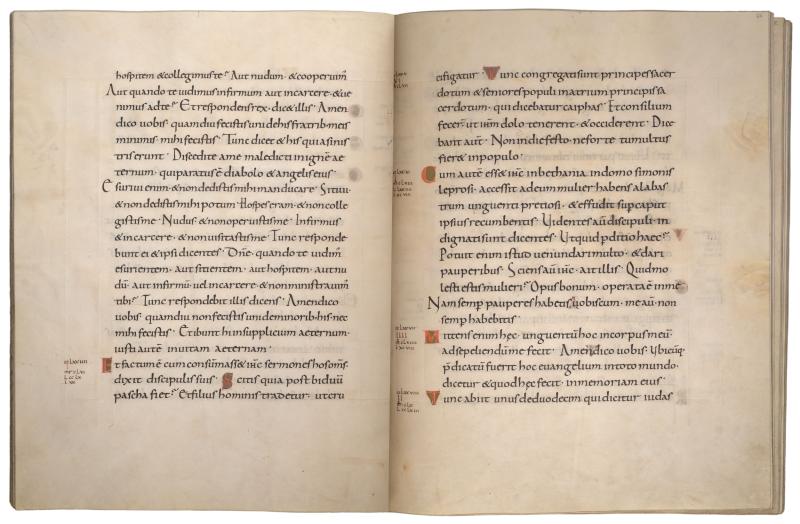 hospitem & collegimus te? Aut nudum · & cooperuim̄
Aut quando te uidimus infirmum aut incarcere · & ue
nimus adte? Et respondens rex · dic& illis · Amen
dico uobis · quamdiu fecistis uni dehis fratrib· meis
minimis · mihi fecistis · Tunc dicet & his qui asinis
tris erunt · Discedite ame maledicti inignē ae
ternum · qui paratus ē diabolo & angelis eius ·
Esuriui enim · & non dedistis mihi manducare · Sitiui ·
& non dedistis mihi potum · Hospes eram · & non colle
gistis me · Nudus & non operuistis me · Infirmus
& incarcere · & non uisitastis me · Tunc responde
bunt ei & ipsi dicentes · Dn̄e · quando te uidim̄
esurientem · aut sitientem · aut hospitem · aut nu
dū · aut infirmū · uel incarcere · & non ministrauim̄
tibi? Tunc respondebit illis dicens · Amen dico
uobis · quamdiu non fecistis uni de minorib· his · nec
mihi fecistis · Et ibunt hi insupplicium aeternum ·
iusti autē inuitam aeternam ·
Et factum ē cum consūmass& ihc̄ sermones hos om̄s ·
dixit discipulis suis · Scitis quia post biduū
pascha fiet? Et filius hominis tradetur · ut cru
cifigatur · Tunc congregati sunt principes sacer
dotum & seniores populi inatrium principis sa
cerdotum · qui dicebatur caiphas · Et consilium
fecer̄ · ut ih̄m dolo tenerent · & occiderent · Dice
bant aut̄ · Non in die festo · ne forte tumultus
fier& inpopulo ·
Cum autē ess& ihc̄ inbethania · indomo simonis
leprosi · accessit adeum mulier habens alabas
trum unguenti pretiosi · & effudit sup caput
ipsius recumbentis · Videntes aū discipuli · in
dignati sunt dicentes · Ut quid pditio haec?
Potuit enim istud uenundari multo · & dari
pauperibus · Sciens aū ihc̄ · ait illis · Quid mo
lesti estis mulieri? Opus bonum · operata ē inme
Nam semp pauperes habetis uobiscum · me aū · non
semp habebitis ·
Mittens enim hęc · unguentū hoc incorpus meū ·
adsepeliendū me fecit · Amen dico uobis · Vbicūq·
p̄dicatū fuerit hoc euangelium intoto mundo ·
dicetur & quod hęc fecit · inmemoriam eius ·
Tunc abiit unus deduodecim · qui dicitur iudas